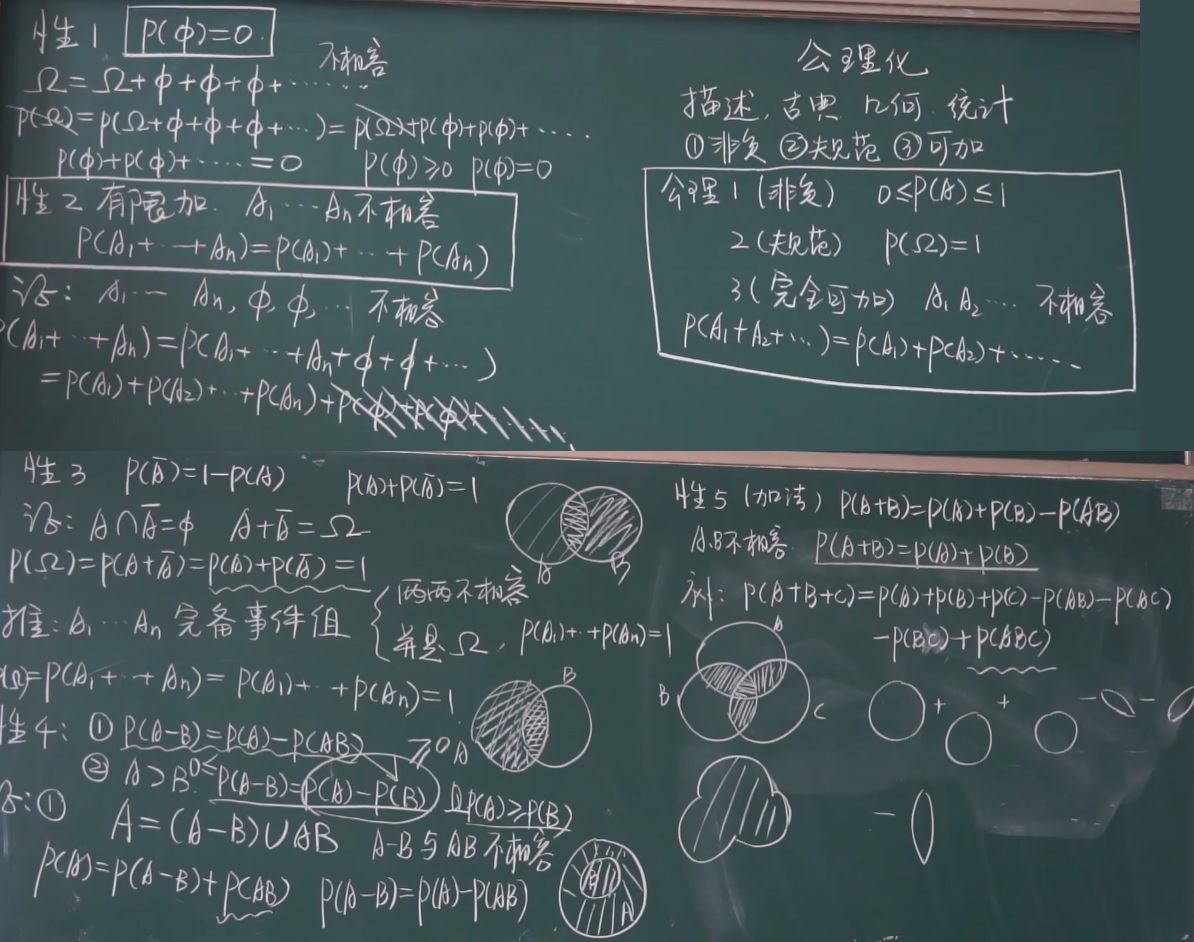 性1 P(ϕ)=0
Ω=Ω+ϕ+ϕ+ϕ+······ 不相容
P(Ω)=P(Ω+ϕ+ϕ+ϕ+···)=P(Ω)+P(ϕ)+P(ϕ)+·····
P(ϕ)+P(ϕ)+·····=0 P(ϕ)≥0 P(ϕ)=0
性2 有限可加. A₁···Aₙ不相容
P(A₁+···+Aₙ)=P(A₁)+···+P(Aₙ)
证: A₁···Aₙ, ϕ, ϕ, ··· 不相容
P(A₁+···+Aₙ)=P(A₁+···+Aₙ+ϕ+ϕ+···)
=P(A₁)+P(A₂)+···+P(Aₙ)+P(ϕ)+P(ϕ)+
公理化
描述, 古典 几何 统计
①非负 ②规范 ③可加
公理1(非负) 0≤P(A)≤1
2(规范) P(Ω)=1
3(完全可加) A₁ A₂ ··· 不相容
P(A₁+A₂+···)=P(A₁)+P(A₂)+·····
性3 P(Ā)=1-P(A) P(A)+P(Ā)=1
证: A∩Ā=ϕ A+Ā=Ω
P(Ω)=P(A+Ā)=P(A)+P(Ā)=1
A B
推: A₁···Aₙ 完备事件组 { 两两不相容
并是Ω, P(A₁)+··+P(Aₙ)=1
P(Ω)=P(A₁+··+Aₙ)=P(A₁)+··+P(Aₙ)=1
性4: ① P(A-B)=P(A)-P(AB) ≥0
A B
② A⊃B 0≤P(A-B)=P(A)-P(B) 且P(A)≥P(B)
证:①
A=(A-B)∪AB A-B与AB不相容
P(A)=P(A-B)+P(AB) P(A-B)=P(A)-P(AB)
B A
性5 (加法) P(A+B)=P(A)+P(B)-P(AB)
A.B不相容. P(A+B)=P(A)+P(B)
例: P(A+B+C)=P(A)+P(B)+P(C)-P(AB)-P(AC)
-P(BC)+P(ABC)
A
B C
+ + - -
-